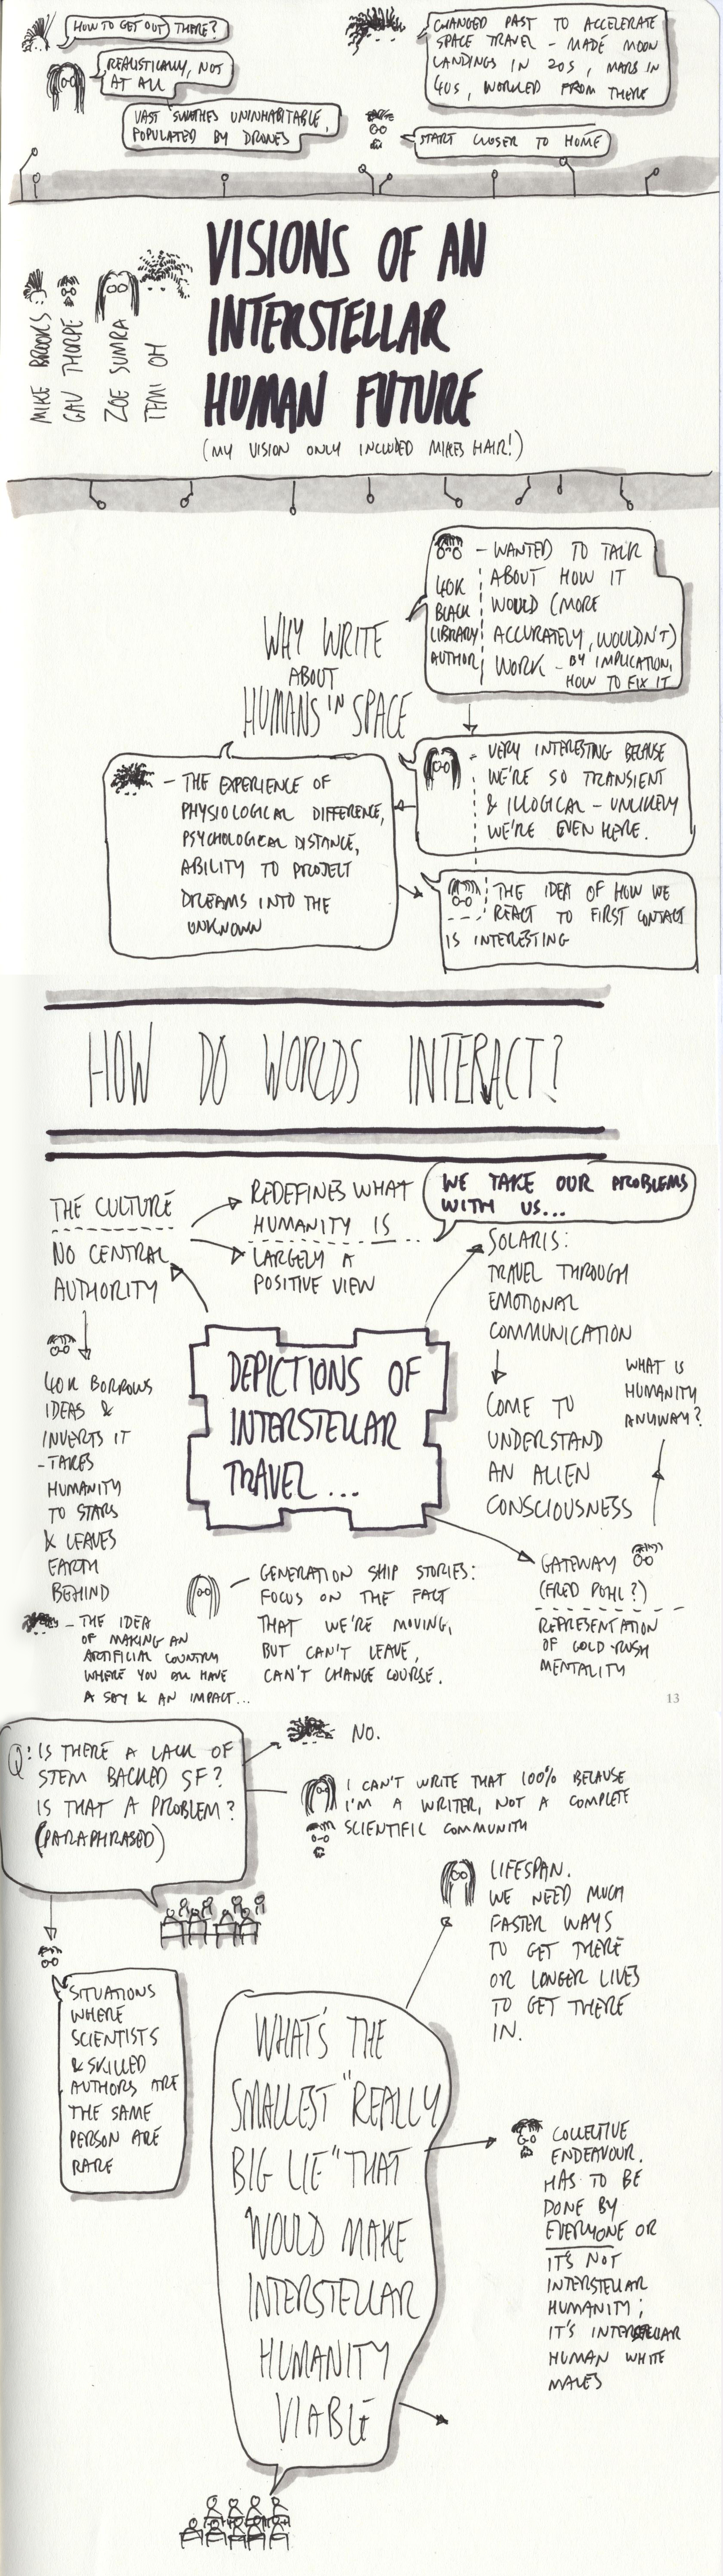 HOW TO GET OUT THERE?
REALISTICALLY, NOT
AT ALL
VAST SWATHES UNINHABITABLE,
POPULATED BY DRONES
CHANGED PAST TO ACCELERATE
SPACE TRAVEL - MADE MOON
LANDINGS IN 20S, MARS IN
40S, WORKED FROM THERE
START CLOSER TO HOME
MIKE BROOKS
GAV THORPE
ZOE SUMRA
TEMI OH
VISIONS OF AN
INTERSTELLAR
HUMAN FUTURE
(MY VISION ONLY INCLUDED MIKES HAIR!)
WHY WRITE
ABOUT
HUMANS IN SPACE
40K
BLACK
LIBRARY
AUTHOR
- WANTED TO TALK
ABOUT HOW IT
WOULD (MORE
ACCURATELY, WOULDN'T)
WORK - BY IMPLICATION,
HOW TO FIX IT
- VERY INTERESTING BECAUSE
WE'RE SO TRANSIENT
& ILLOGICAL - UNLIKELY
WE'RE EVEN HERE.
- THE EXPERIENCE OF
PHYSIOLOGICAL DIFFERENCE,
PSYCHOLOGICAL DISTANCE,
ABILITY TO PROJECT
DREAMS INTO THE
UNKNOWN
THE IDEA OF HOW WE
REACT TO FIRST CONTACT
IS INTERESTING
HOW DO WORLDS INTERACT?
THE CULTURE
NO CENTRAL
AUTHORITY
REDEFINES WHAT
HUMANITY IS
LARGELY A
POSITIVE VIEW
WE TAKE OUR PROBLEMS
WITH US...
SOLARIS:
TRAVEL THROUGH
EMOTIONAL
COMMUNICATION
COME TO
UNDERSTAND
AN ALIEN
CONSCIOUSNESS
WHAT IS
HUMANITY
ANYWAY?
DEPICTIONS OF
INTERSTELLAR
TRAVEL...
40K BORROWS
IDEAS &
INVERTS IT
- TAKES
HUMANITY
TO STARS
& LEAVES
EARTH
BEHIND
- THE IDEA
OF MAKING AN
ARTIFICIAL COUNTRY
WHERE YOU ALL HAVE
A SAY & AN IMPACT...
GENERATION SHIP STORIES:
FOCUS ON THE FACT
THAT WE'RE MOVING,
BUT CAN'T LEAVE,
CAN'T CHANGE COURSE.
GATEWAY
(FRED POHL?)
REPRESENTATION
OF GOLD-RUSH
MENTALITY
13
Q: IS THERE A LACK OF
STEM BACKED SF?
IS THAT A PROBLEM?
(PARAPHRASED)
NO.
I CAN'T WRITE THAT 100% BECAUSE
I'M A WRITER, NOT A COMPLETE
SCIENTIFIC COMMUNITY
SITUATIONS
WHERE
SCIENTISTS
& SKILLED
AUTHORS ARE
THE SAME
PERSON ARE
RARE
LIFESPAN.
WE NEED MUCH
FASTER WAYS
TO GET THERE
OR LONGER LIVES
TO GET THERE
IN.
WHAT'S THE
SMALLEST "REALLY
BIG LIE" THAT
WOULD MAKE
INTERSTELLAR
HUMANITY
VIABLE
COLLECTIVE
ENDEAVOUR.
HAS TO BE
DONE BY
EVERYONE OR
IT'S NOT
INTERSTELLAR
HUMANITY;
IT'S INTERSTELLAR
HUMAN WHITE
MALES